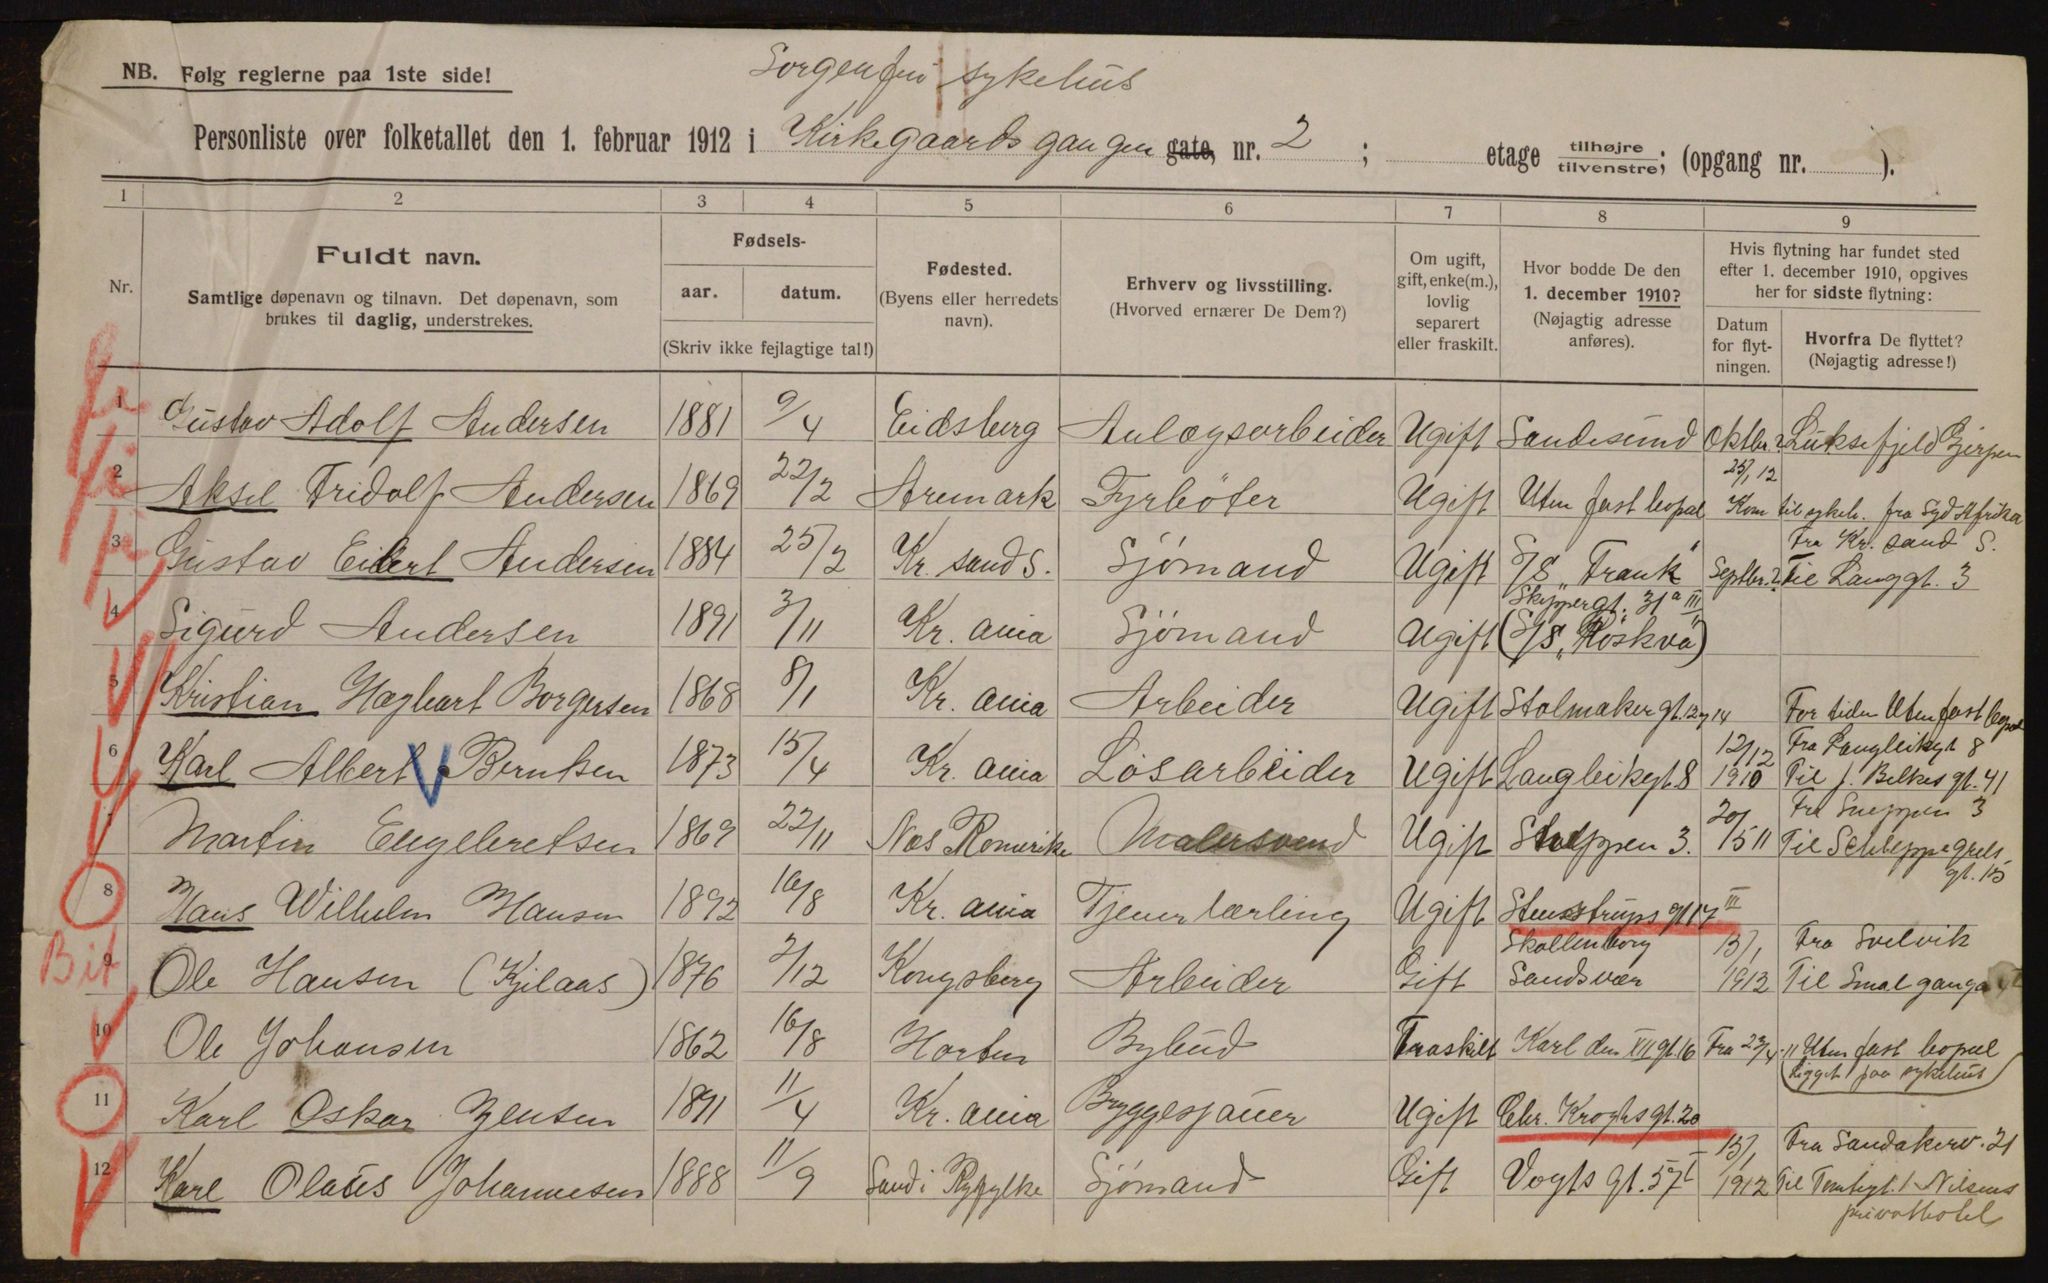 NB. Følg reglerne paa 1ste side!
Sorgenfri sykehus
Personliste over folketallet den 1. februar 1912 i Kirkegaardsgangen gate, nr. 2 ; etage tilhøjre/tilvenstre; (opgang nr. ).
1 2 3 4 5 6 7 8 9
Nr.
Fuldt navn.
Samtlige døpenavn og tilnavn. Det døpenavn, som
brukes til daglig, understrekes.
Fødsels-
aar. datum.
(Skriv ikke fejlagtige tal!)
Fødested.
(Byens eller herredets
navn).
Erhverv og livsstilling.
(Hvorved ernærer De Dem?)
Om ugift,
gift, enke(m.),
lovlig
separert
eller fraskilt.
Hvor bodde De den
1. december 1910?
(Nøjagtig adresse
anføres).
Hvis flytning har fundet sted
efter 1. december 1910, opgives
her for sidste flytning:
Datum
for flyt-
ningen.
Hvorfra De flyttet?
(Nøjagtig adresse!)
1 Gustav Adolf Andersen 1881 9/4 Eidsberg Anlægsarbeider Ugift Sandesund Oktbr.? Luksefjeld Gjerpen
2 Aksel Fridolf Andersen 1869 22/2 Aremark Fyrbøter Ugift Uten fast bopæl 25/1 12 Kom til sykeh. fra Syd Afrika
3 Gustav Eilert Andersen 1884 25/2 Kr. sand S. Sjømand Ugift S/S "Frank" Septbr.? Fra Kr. sand S.
Til Langgt. 3
4 Sigurd Andersen 1891 3/11 Kr. ania Sjømand Ugift Skippergt. 31a III
(S/S "Röskva")
5 Kristian Hagbart Borgersen 1868 8/1 Kr. ania Arbeider Ugift Stolmakergt. 12 14 For tiden Uten fast bopæl
6 Karl Albert Berntsen 1873 15/4 Kr. ania Løsarbeider Ugift Langleikgt. 8 12/12 1910 Fra Langleikgt 8
Til J. Belkes gt. 41
7 Martin Engebretsen 1869 22/11 Nes Romerike Malersvend Ugift Sneppen 3. 20/5 11 Fra Sneppen 3
Til Schleppegrels
gt. 15
8 Hans Wilhelm Hansen 1892 16/8 Kr. ania Tjenerlærling Ugift Stenstrups gt 17 III
Bit
9 Ole Hansen (Kjilaas) 1876 2/12 Kongsberg Arbeider Gift Skollenborg
Sandsvær 15/1 1912 Fra Svelvik
Til Smalganga
10 Ole Johansen 1862 16/8 Horten Bybud Fraskilt Karl den XII gt. 16 Fra 23/4-11 Uten fast bopæl
(Ligget paa sykehus)
11 Karl Oskar Jensen 1891 11/4 Kr. ania Bryggesjauer Ugift Chr. Kroghs gt. 20
12 Karl Olaus Johannesen 1888 11/9 Sand i Ryfylke Sjømand Gift Vogts gt. 57 I 15/1 1912 Fra Sandakerv. 21
Til Tomtegt. 1 Nilsens
privathotel